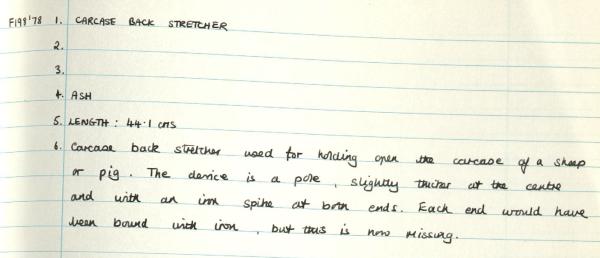 F198'78 1. CARCASE BACK STRETCHER
2.
3.
4. ASH
5. LENGTH : 44.1 CMS
6. Carcase back stretcher used for holding open the carcase of a sheep
or pig. The device is a pole, slightly thicker at the centre
and with an iron spike at both ends. Each end would have
been bound with iron, but this is now missing.